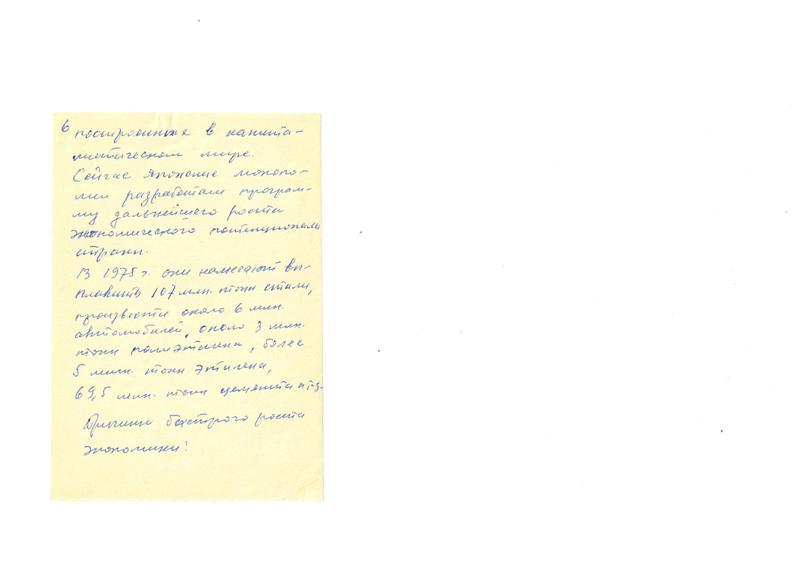 6 построенных в капита-
листическом мире.
Сейчас Японские монопо-
лии разработали програм-
му дальнейшего роста
экономического потенциала
страны.
В 1975 г. они намечают вы-
плавить 107 млн. тонн стали,
произвести около 6 млн.
автомобилей, около 3 млн.
тонн полиэтилена, более
5 млн. тонн этилена,
69,5 млн. тонн цемента и т.д.
Причины быстрого роста
экономики: